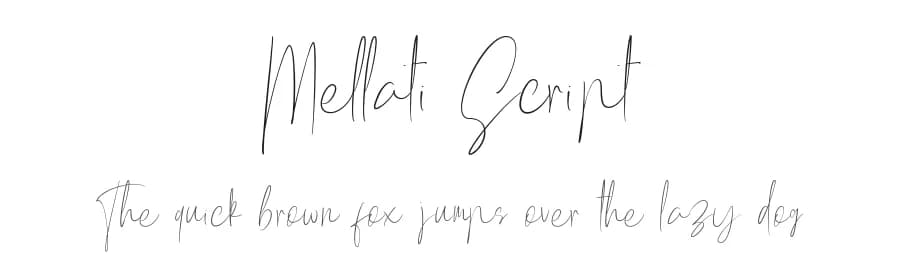 Mellati Script
The quick brown fox jumps over the lazy dog